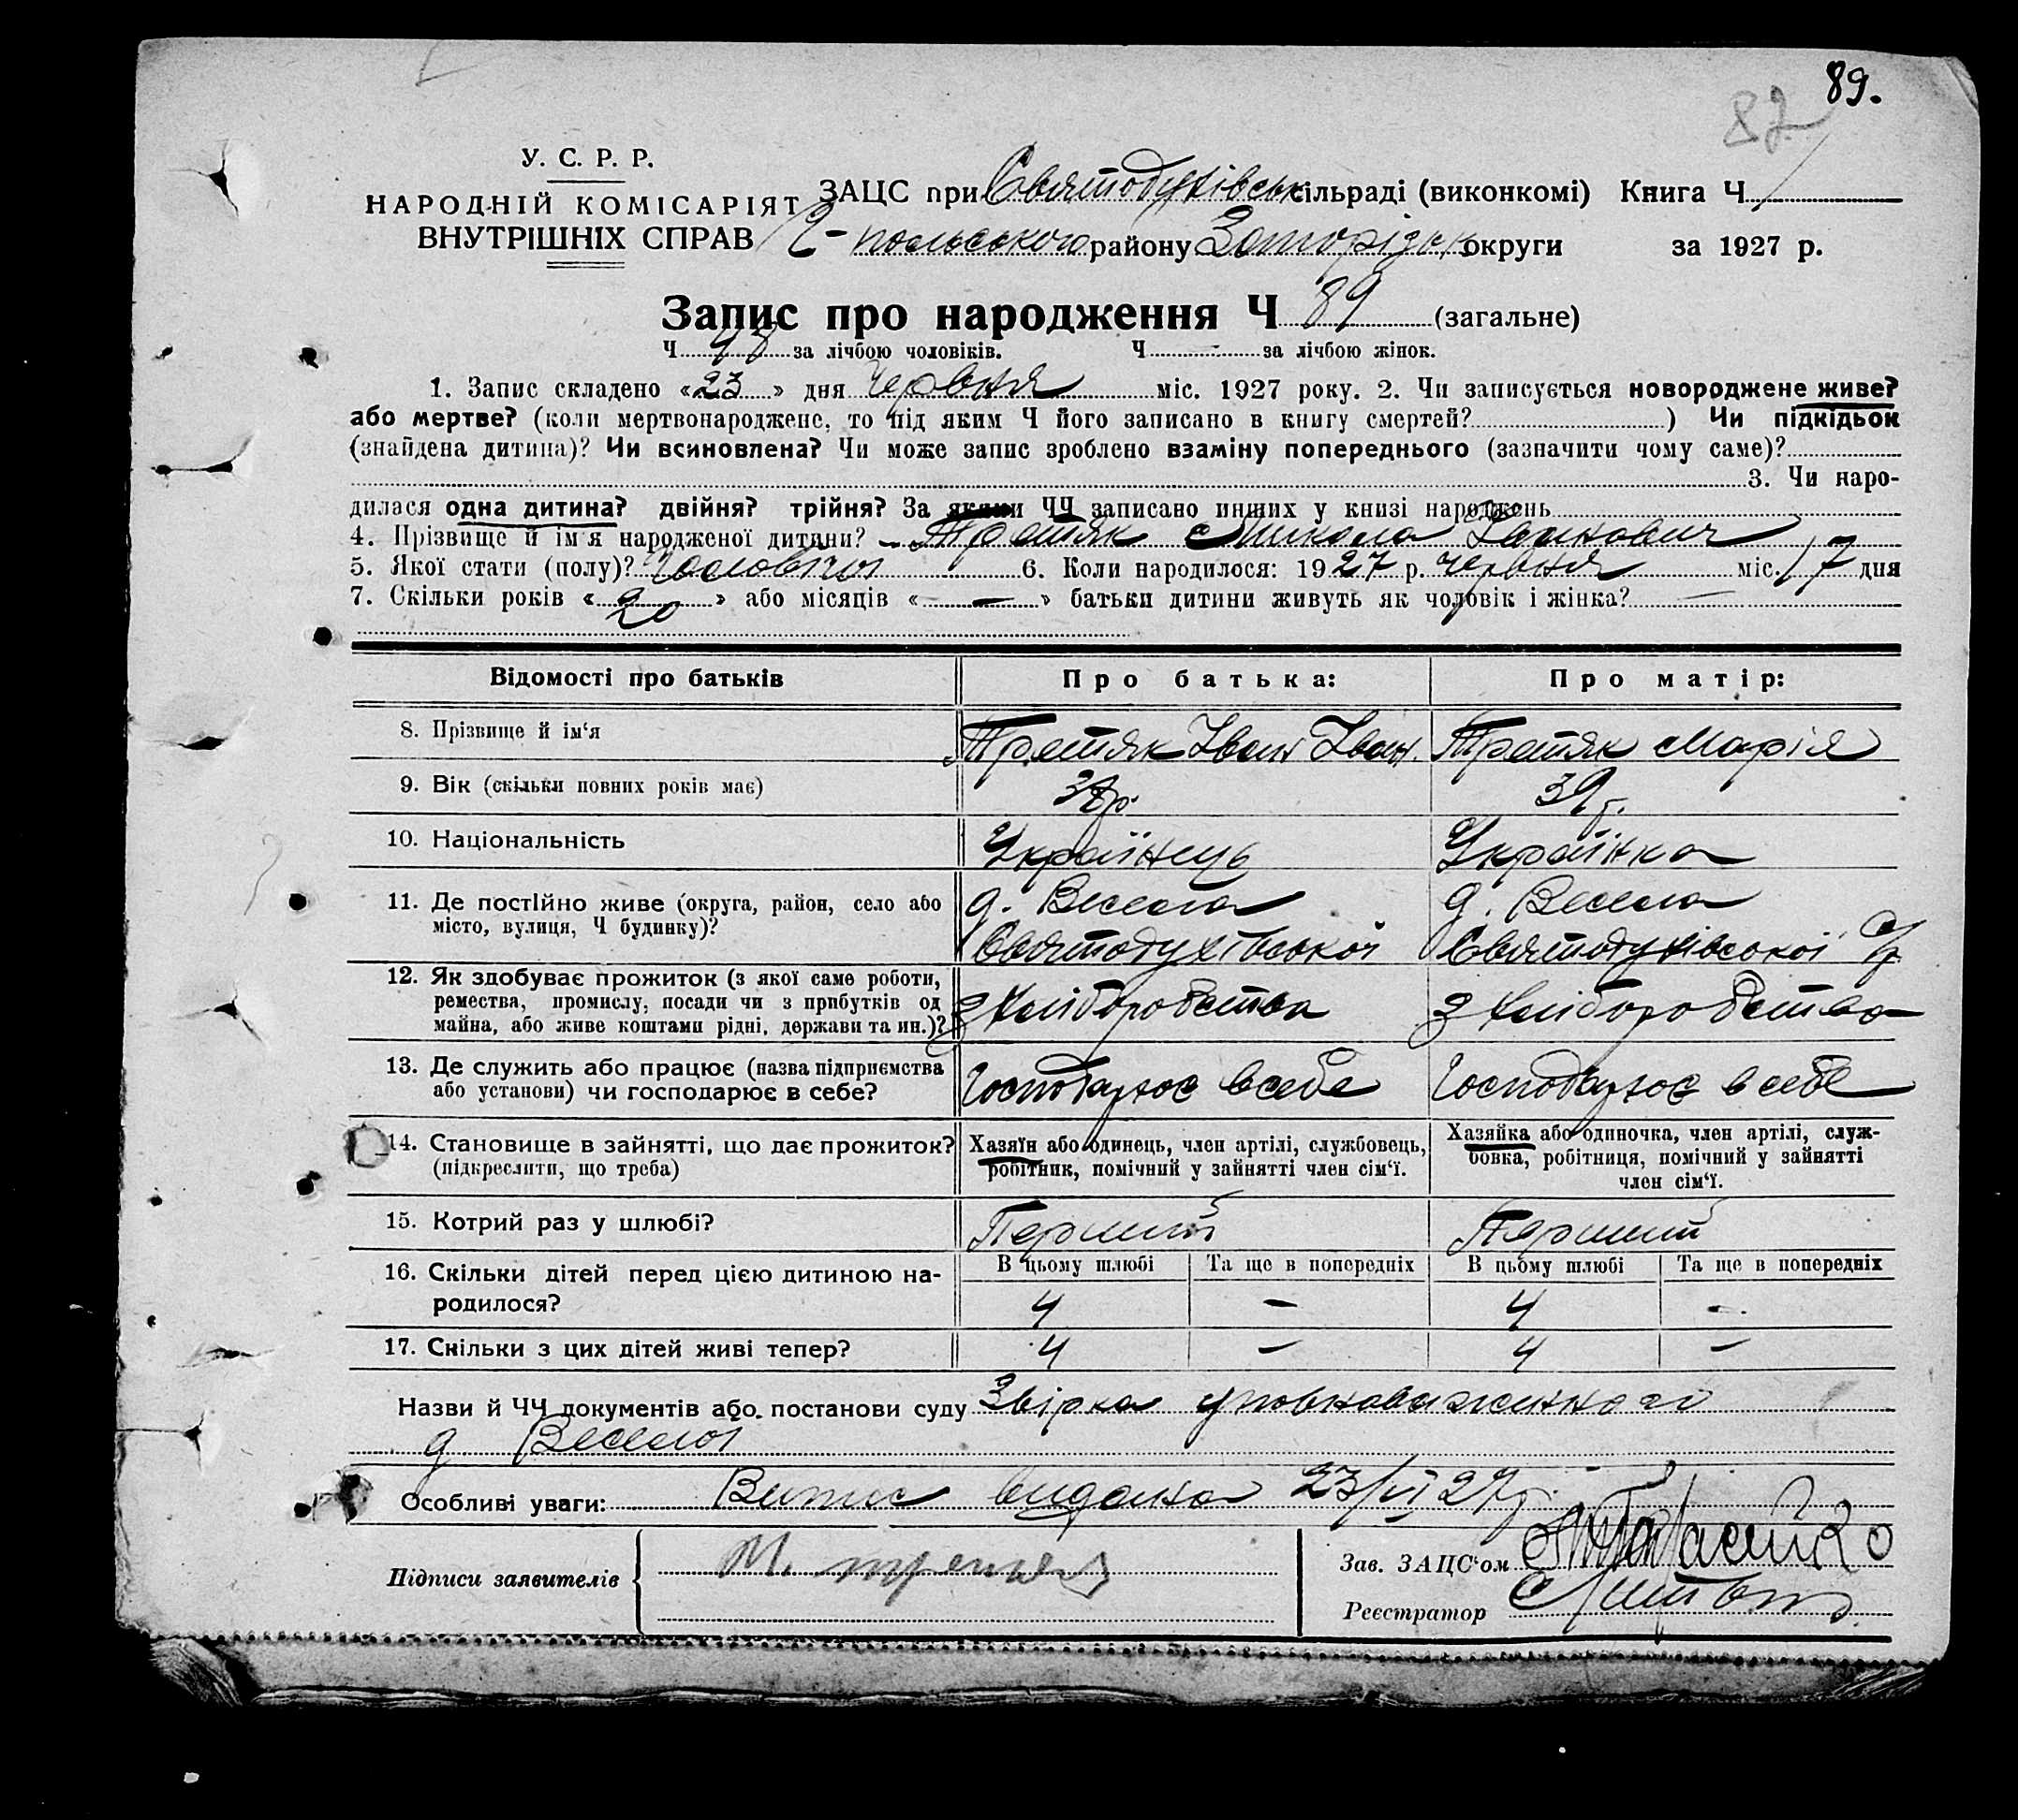 89.
82
У. С. Р. Р.
НАРОДНІЙ КОМІСАРІЯТ
ВНУТРІШНІХ СПРАВ
ЗАЦС при Святодухівськ сільраді (виконкомі) Книга Ч
польського району Запорізьк округи за 1927 р.
Запис про народження Ч 89 (загальне)
Ч 48 за лічбою чоловіків. Ч - за лічбою жінок.
1. Запис складено «23» дня Червня міс. 1927 року. 2. Чи записується новороджене живе?
або мертве? (коли мертвонароджене, то під яким Ч його записано в книгу смертей? ) Чи підкідьок
(знайдена дитина)? Чи всиновлена? Чи може запис зроблено взаміну попереднього (зазначити чому саме)?
3. Чи наро-
дилася одна дитина? двійня? трійня? За якими ЧЧ записано инших у книзі народжень
4. Прізвище й ім'я народженої дитини? Третяк Микола Іванович
5. Якої стати (полу)? Чоловічої 6. Коли народилося: 1927 р. червня міс. 17 дня
7. Скільки років «20» або місяців «—» батьки дитини живуть як чоловік і жінка? —
Відомості про батьків Про батька: Про матір:
8. Прізвище й ім'я Третяк Іван Іван. Третяк Марія
9. Вік (скільки повних років має) 38р. 39 г.
10. Національність Українець Українка
11. Де постійно живе (округа, район, село або д. Весела д. Весела
місто, вулиця, Ч будинку)? Святодухівської Святодухівської с/р
12. Як здобуває прожиток (з якої саме роботи,
ремества, промислу, посади чи з прибутків од З хліборобства З хліборобства
майна, або живе коштами рідні, держави та ин.)?
13. Де служить або працює (назва підприємства Господарює в себе Господарює в себе
або установи) чи господарює в себе?
14. Становище в зайнятті, що дає прожиток? Хазяїн або одинець, член артілі, службовець, Хазяйка або одиночка, член артілі, служ-
(підкреслити, що треба) робітник, помічний у зайнятті член сім'ї. бовка, робітниця, помічний у зайнятті
член сім'ї.
15. Котрий раз у шлюбі? Перший Перший
16. Скільки дітей перед цією дитиною на- В цьому шлюбі Та ще в попередніх В цьому шлюбі Та ще в попередніх
родилося? 4 — 4 -
17. Скільки з цих дітей живі тепер? 4 — 4 —
Назви й ЧЧ документів або постанови суду Звірка уповноваженного
д Веселої
Особливі уваги: Випис видана 23/VI 27р.
Підписи заявителів М. третяк
Зав. ЗАЦС'ом
Реєстратор